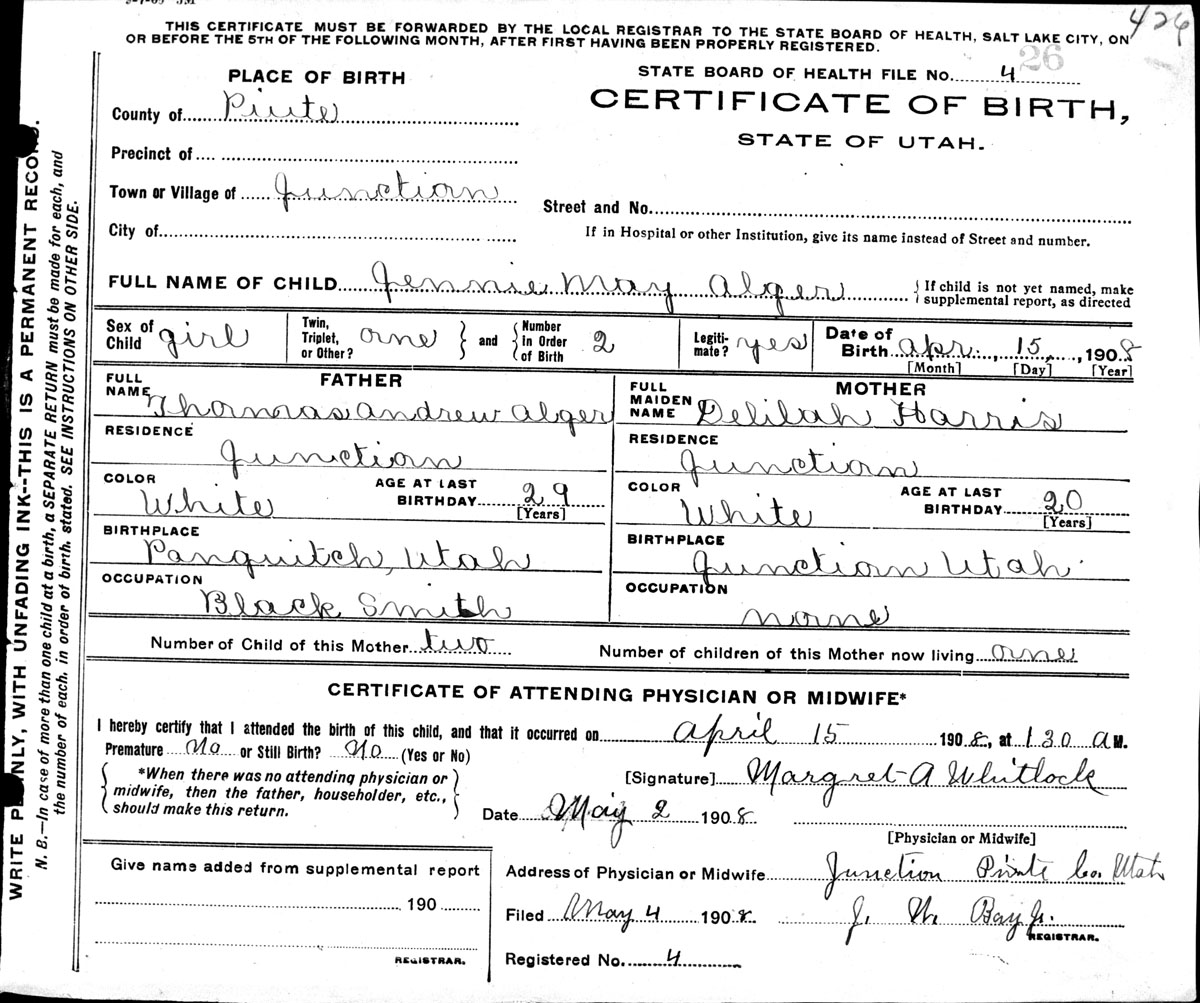 426
THIS CERTIFICATE MUST BE FORWARDED BY THE LOCAL REGISTRAR TO THE STATE BOARD OF HEALTH, SALT LAKE CITY, ON
OR BEFORE THE 5TH OF THE FOLLOWING MONTH, AFTER FIRST HAVING BEEN PROPERLY REGISTERED.
26
PLACE OF BIRTH
STATE BOARD OF HEALTH FILE No. 4
CERTIFICATE OF BIRTH,
STATE OF UTAH.
County of Piute
Precinct of
Town or Village of Junction
Street and No.
City of
If in Hospital or other Institution, give its name instead of Street and number.
FULL NAME OF CHILD Jennie May Alger { If child is not yet named, make
supplemental report, as directed
Sex of Child girl Twin, Triplet, or Other? one } and { Number In Order of Birth 2 Legiti- mate? yes Date of Birth Apr. 15, 1908
[Month] [Day] [Year]
FATHER
FULL NAME Thomas Andrew Alger
RESIDENCE
Junction
COLOR White AGE AT LAST BIRTHDAY 29
[Years]
BIRTHPLACE
Panguitch, Utah
OCCUPATION
Black Smith
MOTHER
FULL MAIDEN NAME Delilah Harris
RESIDENCE
Junction
COLOR White AGE AT LAST BIRTHDAY 20
[Years]
BIRTHPLACE
Junction Utah
OCCUPATION
none
Number of Child of this Mother two Number of children of this Mother now living one
CERTIFICATE OF ATTENDING PHYSICIAN OR MIDWIFE*
I hereby certify that I attended the birth of this child, and that it occurred on April 15 1908, at 130 A M.
Premature No or Still Birth? No (Yes or No)
{ *When there was no attending physician or
midwife, then the father, householder, etc.,
should make this return. }
[Signature] Margret A Whitlock
Date May 2 1908
[Physician or Midwife]
Give name added from supplemental report
190
REGISTRAR.
Address of Physician or Midwife Junction Piute Co. Utah
Filed May 4 1908 J. W. Bay Jr.
REGISTRAR.
Registered No. 4
WRITE PLAINLY, WITH UNFADING INK--THIS IS A PERMANENT RECORD.
N. B.—In case of more than one child at a birth, a SEPARATE RETURN must be made for each, and
the number of each, in order of birth, stated. SEE INSTRUCTIONS ON OTHER SIDE.